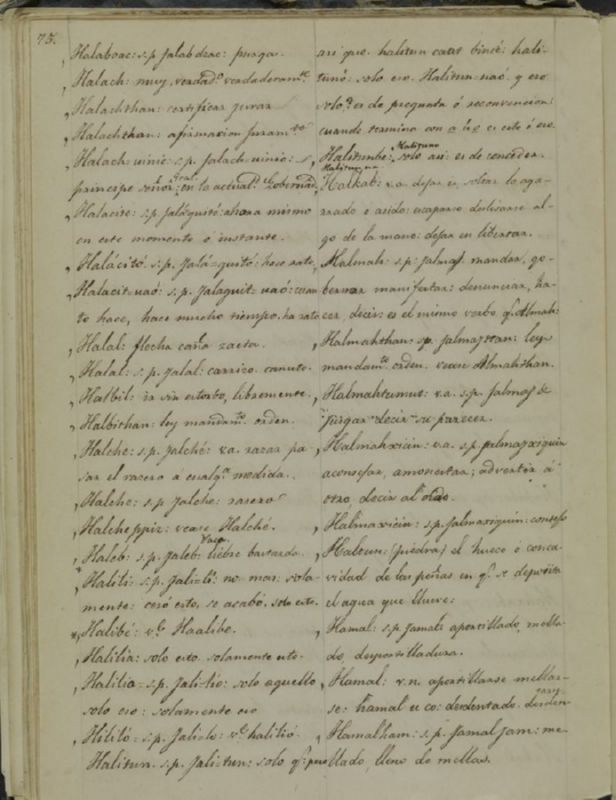 75.
Halaboae: s.p. Jalabdzac: purga.
Halach: muy, verdadª verdaderamte
Halachthan: certificar jurar
Halachthan: afirmacion juramto
Halach-uinic: s.p. jalach-uinic:
principe señor: gral: en lo actualid. el Gobernad.
Halacito: s.p. jalaquitó: ahora mismo
en este momento ó instante.
Halácitó: s.p. Jalá-quitó: hace rato
Halacit-uaó: s.p. Jalaquit-uaó: cuan
to hace, hace mucho tiempo. ha rato
Halal: flecha caña zaeta.
Halal: s.p. jalal: carrizo. canuto.
Halbil: ir sin estorbo, libremente.
Halbithan: ley mandamto orden.
Halche: s.p. Jalché: v.a. razar pa-
sar el razero a cualqª medida.
Halche: s.p. Jalche: razero
Halcheppiz: vease Halché.
Haleb: s.p. Jaleb: liebre bastarda.
Haliti: s.p. Jali-ti: no mas: sola-
mente: cesó esto, se acabó. solo esto.
Halibé: v.º Haalibe.
Halilia: solo esto. solamente esto.
Halilia: s.p. Jali-lió: solo aquello
solo eso: solamente eso
Hiliió: s.p. Jali-lo: v.º halilió.
Halitun. s.p. Jali-tun: solo q.e pues
asi que. halitun catat bincé: hali-
tunó: solo eso. Halitun-uaó y eso
solo? es de pregunta ó reconvencion:
cuando termina con a ó e es esto ó eso
Halituno
Halitunbe: solo asi: es de conceder.
Halkab: v.a. dejar ir, soltar lo aga-
rrado ó asido: escaparse deslisarse al-
go de la mano: dejar en libertar.
Halmah: s.p. jalmaj. mandar, go-
bernar manifestar: denunciar, ha-
cer, decir: es el mismo verbo q.e Almah:
Halmahthan: sp. jalmajtan: ley
mandamto orden. vease Almahthan.
Halmahtumut: v.a. s.p. jalmaj &
juzgar decir su parecer.
Halmahxicin: v.a. s.p. jalmajxiquin
aconsejar, amonestar; advertir á
otro, decir al oido.
Halmaxicin: s.p. jalmaxiquin: consejo
Haltun: (piedra) el hueco ó conca-
vidad de las peñas en q.e se deposita
el agua que llueve:
Hamal: s.p. jamal: aportillado, mella-
do, desportilladura.
Hamal: v.n. aportillarse mellar-
se: hamal u co: desdentado. desden-
tarse
Hamalham: s.p. Jamaljam: me-
llado, lleno de mellas.